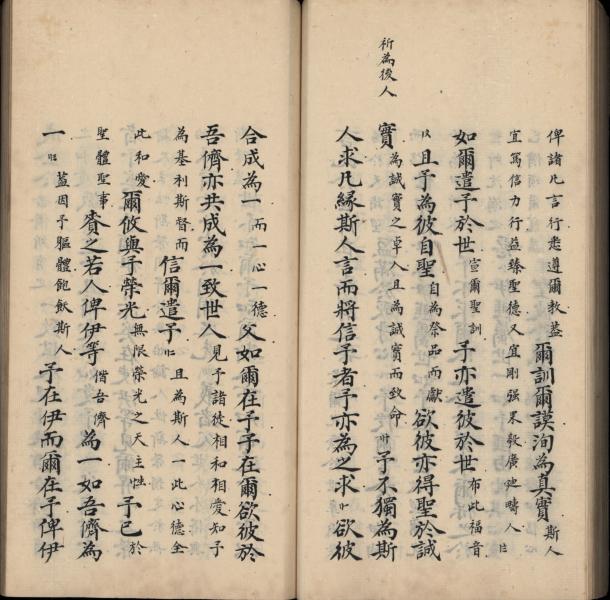 俾諸凡言行悉遵爾教蓋爾訓爾謨洵為真實斯人
宜篤信力行益臻聖德又宜剛強果毅廣廸疇人
如爾遣予於世宣爾聖訓予亦遣彼於世布此福音
且予為彼自聖自為祭品而獻欲彼亦得聖於誠
實為誠實之卓人且為誠實而致命予不獨為斯
祈為後人
人求凡縁斯人言而將信予者予亦為之求欲彼
合成為一而一心一德父如爾在予予在爾欲彼於
吾儕亦共成為一致世人見予諸徒相和相愛知予
為基利斯督而信爾遣予且為斯人一此心德全
此和愛爾攸與予榮光無限榮光之天主性予已於
聖體聖事賚之若人俾伊等偕吾儕為一如吾儕為
一蓋因予軀體飽飫斯人予在伊而爾在予俾伊